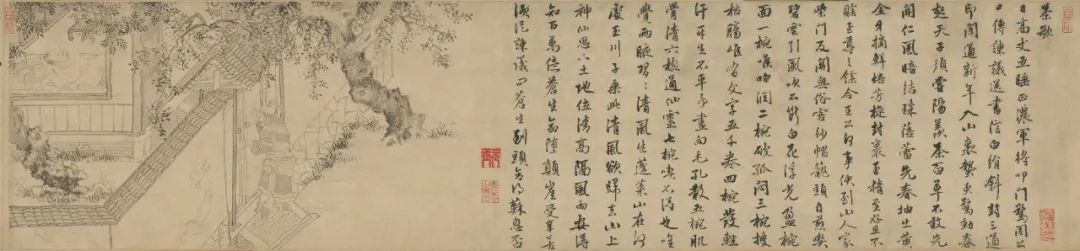 茶歌
日高丈五睡正濃軍將叩門驚周
口傳諫議送書信白絹斜封三道
印聞道新年入山裏蟄蟲驚動春
起天子須嘗陽羨茶百草不敢先
開仁風暗結珠蓓蕾先春抽出黃
金牙摘鮮焙芳旋封裹至精至好且不
至尊之餘合王公何事便到山人家
柴門反關無俗客紗帽籠頭自煎喫
碧雲引風吹不斷白花浮光盈椀
面一椀喉吻潤二椀破孤悶三椀搜
枯腸唯有文字五千卷四椀發輕
汗平生不平事盡向毛孔散五椀肌
骨清六椀通仙靈七椀喫不得也唯
覺兩腋習〻清風生蓬萊山在何
處玉川子乘此清風欲歸去山上
神仙思下土地位清高隔風雨安得
知百萬億蒼生命墮顛崖受辛苦
須從諫議問蒼生到頭合得蘇息否